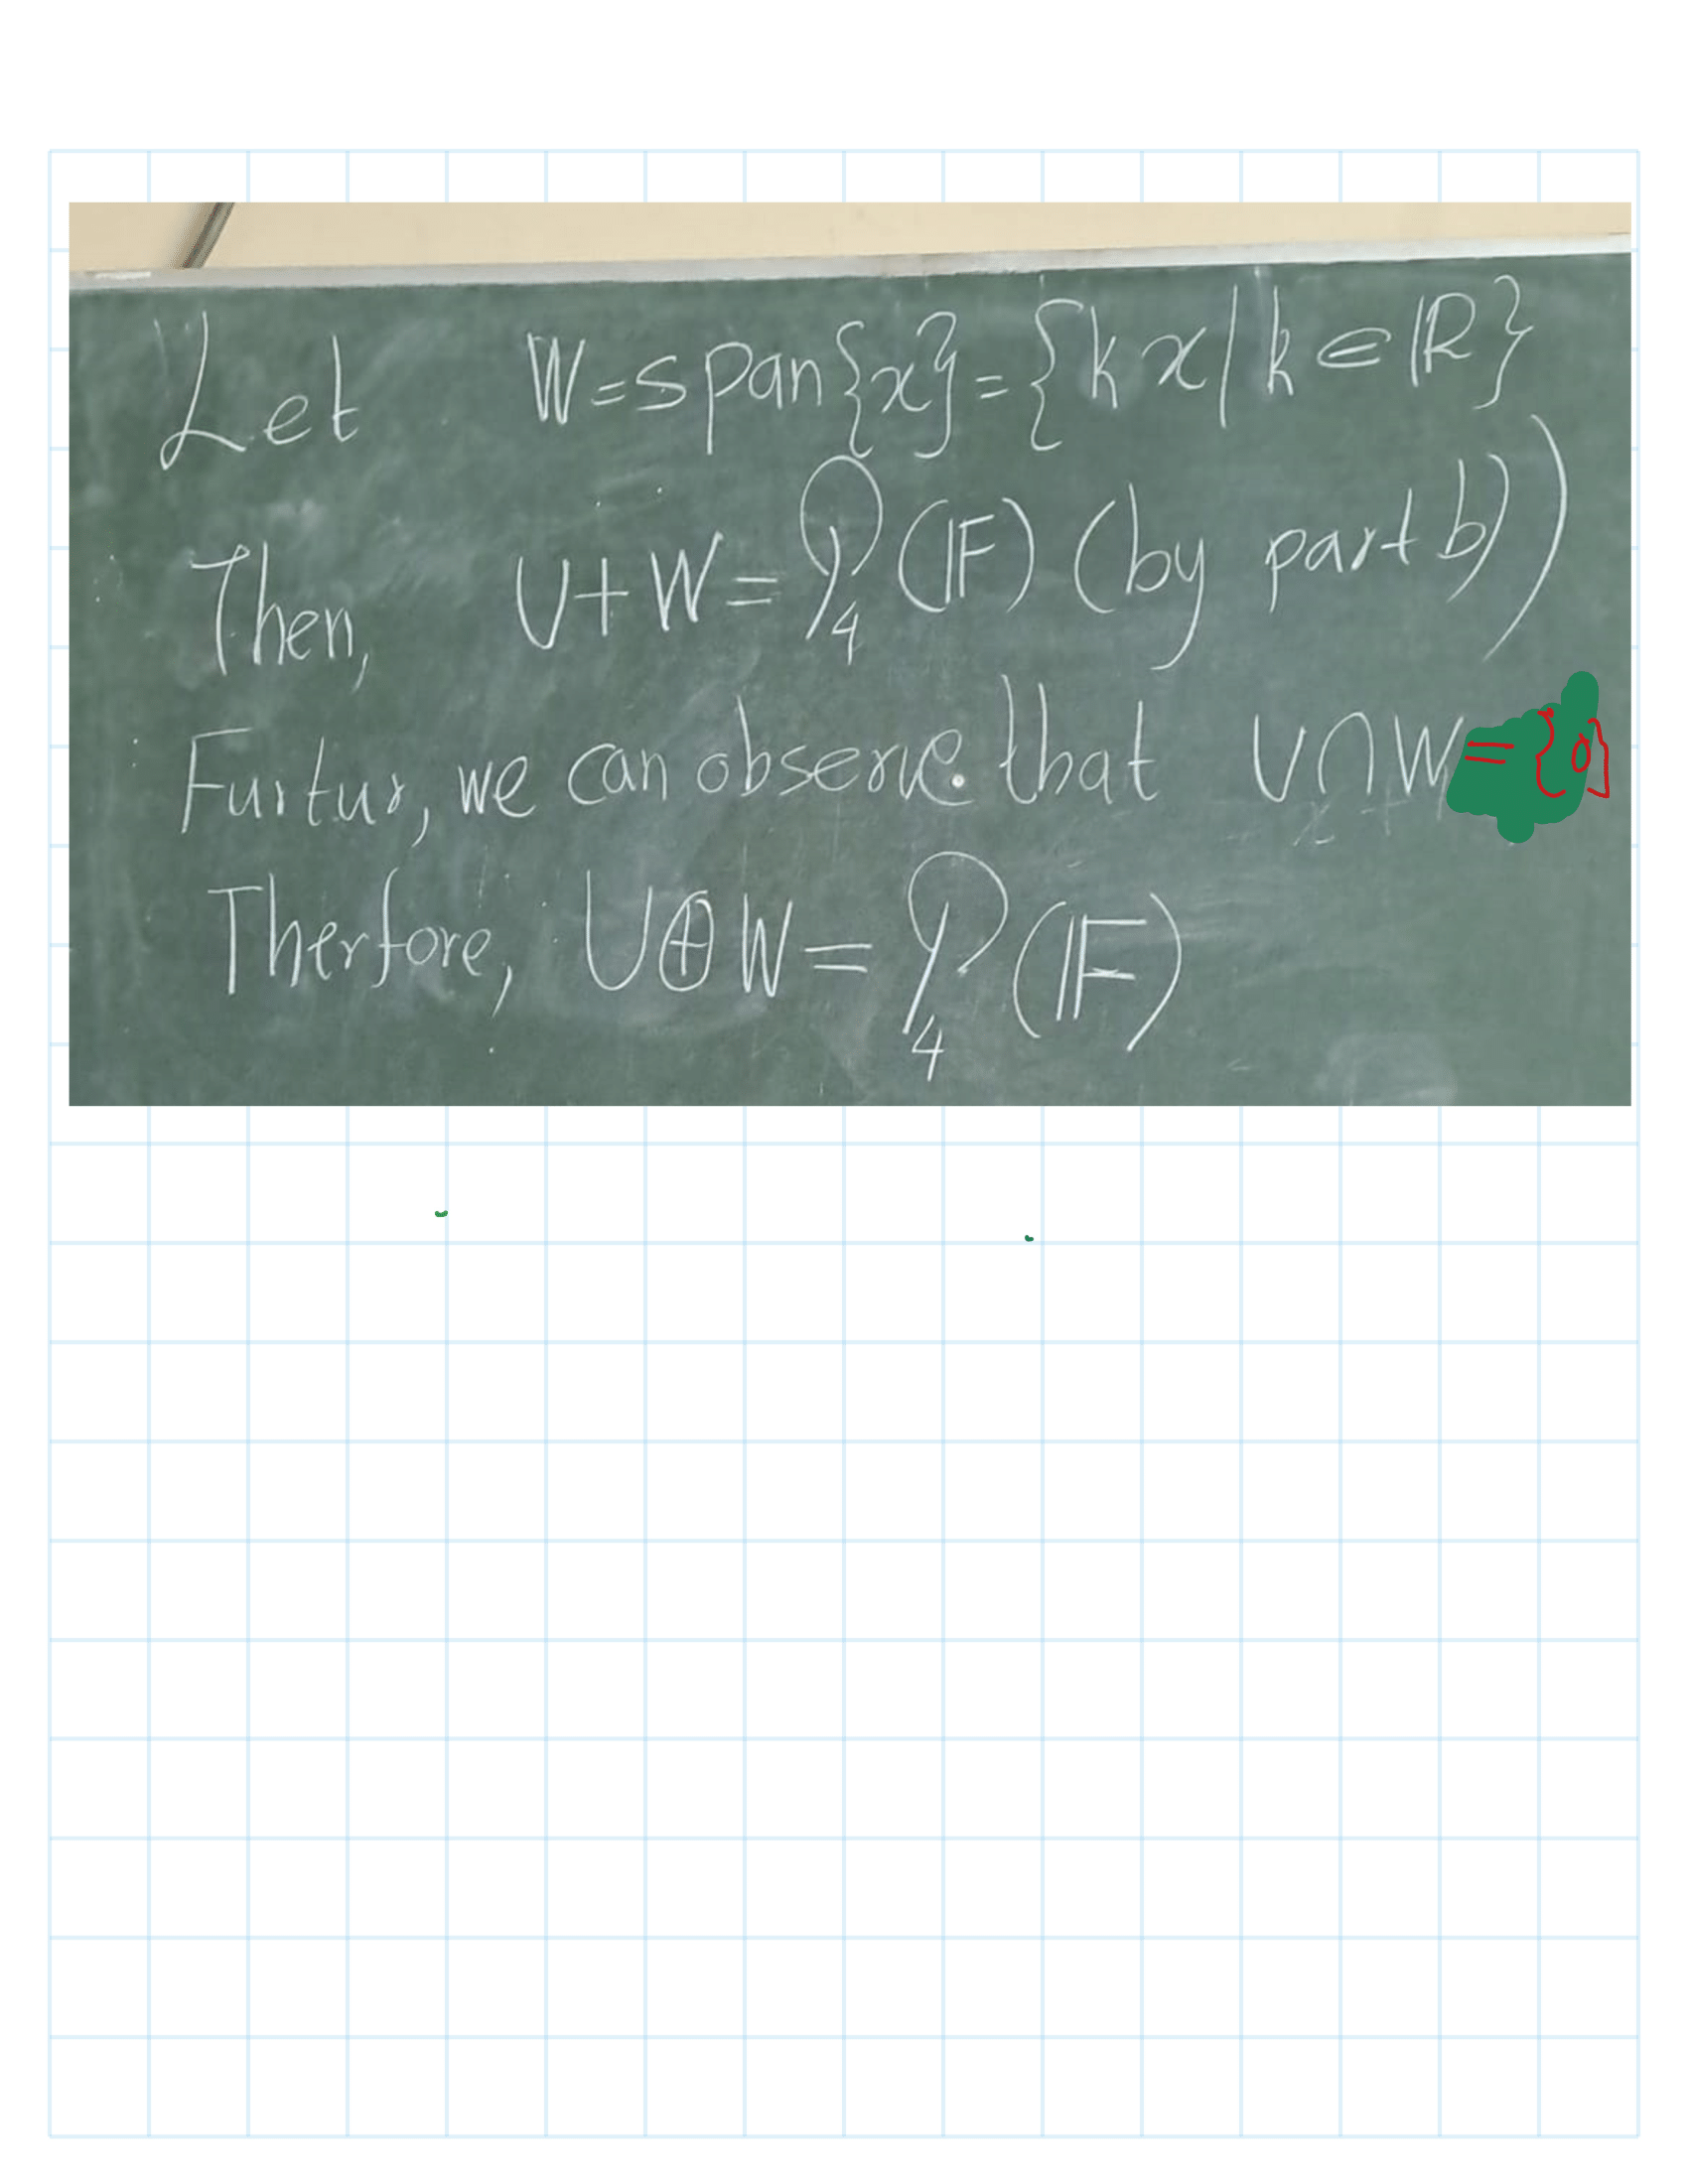 Let W = span{x} = {kx | k ∈ ℝ}
Then, U + W = P₄(𝔽) (by part b))
Furtur, we can observe that U ∩ W = {0}
Therfore, U ⊕ W = P₄(𝔽)